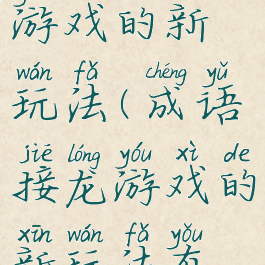 游戏的新
wán fǎ chéng yǔ
玩法(成语
jiē lóng yóu xì de
接龙游戏的
xīn wán fǎ yǒu
新玩法有